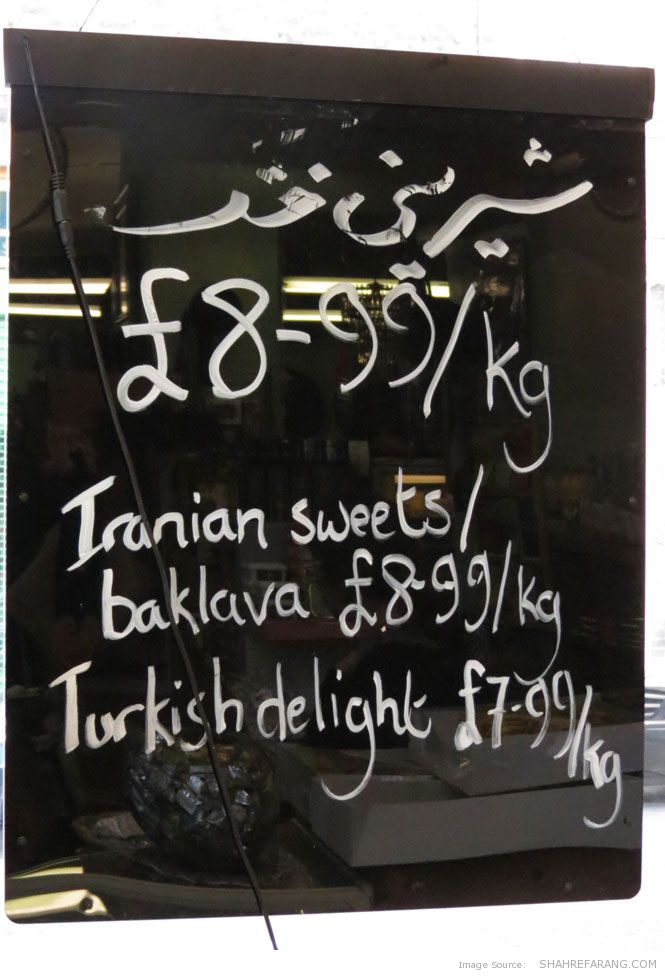 شیرینی
£8-99/kg
Iranian sweets/
baklava £8-99/kg
Turkish delight £7-99/kg
Image Source: SHAHREFARANG.COM